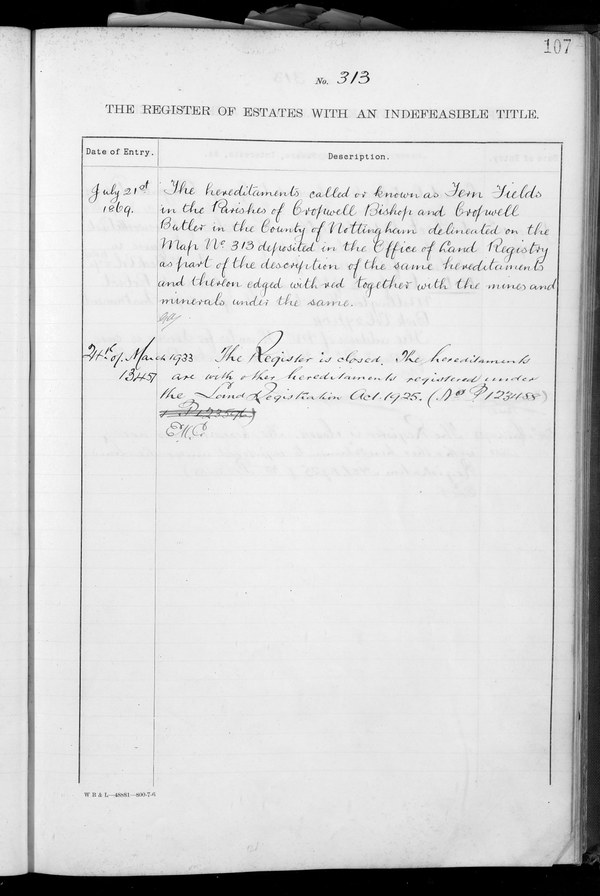 107
No. 313
THE REGISTER OF ESTATES WITH AN INDEFEASIBLE TITLE.
Date of Entry.
Description.
July 21st
1869.
The hereditaments called or known as Fern Fields
in the Parishes of Cropwell Bishop and Cropwell
Butler in the County of Nottingham delineated on the
Map No. 313 deposited in the Office of Land Registry
as part of the description of the same hereditaments
and thereon edged with red together with the mines and
minerals under the same.
24th of March 1933
The Register is closed. The hereditaments
are with other hereditaments registered under
the Land Registration Act 1925. (Nos P 123488
W B & L—48881—600-7-6